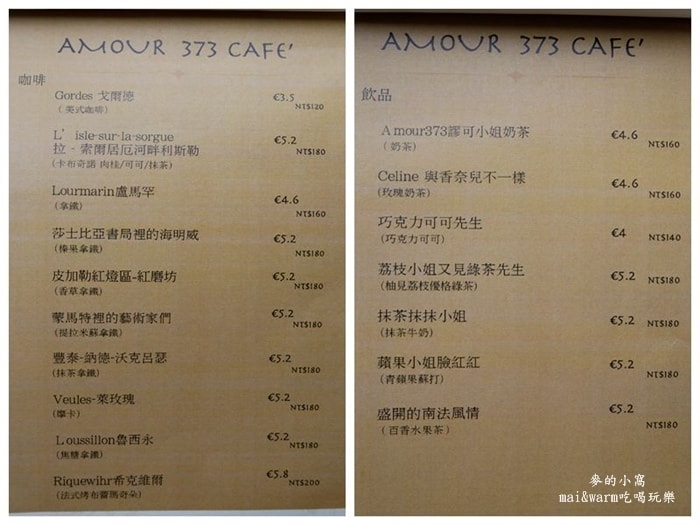 AMOUR 373 CAFE'
咖啡
Gordes 戈爾德 €3.5
(美式咖啡) NT$120
L' isle-sur-la-sorgue €5.2
拉-索爾居厄河畔利斯勒 NT$180
(卡布奇諾 肉桂/可可/抹茶)
Lourmarin盧馬罕 €4.6
(拿鐵) NT$160
莎士比亞書局裡的海明威 €5.2
(榛果拿鐵) NT$180
皮加勒紅燈區-紅磨坊 €5.2
(香草拿鐵) NT$180
蒙馬特裡的藝術家們 €5.2
(提拉米蘇拿鐵) NT$180
豐泰-納德-沃克呂瑟 €5.2
(抹茶拿鐵) NT$180
Veules-萊玫瑰 €5.2
(摩卡) NT$180
Loussillon魯西永 €5.2
(焦糖拿鐵) NT$180
Riquewihr希克維爾 €5.8
(法式烤布蕾瑪奇朵) NT$200
AMOUR 373 CAFE'
飲品
Amour373謬可小姐奶茶 €4.6
(奶茶) NT$160
Celine 與香奈兒不一樣 €4.6
(玫瑰奶茶) NT$160
巧克力可可先生 €4
(巧克力可可) NT$140
荔枝小姐又見綠茶先生 €5.2
(柚見荔枝優格綠茶) NT$180
抹茶抹抹小姐 €5.2
(抹茶牛奶) NT$180
蘋果小姐臉紅紅 €5.2
(青蘋果蘇打) NT$180
盛開的南法風情 €5.2
(百香水果茶) NT$180
麥的小窩
mai&warm吃喝玩樂